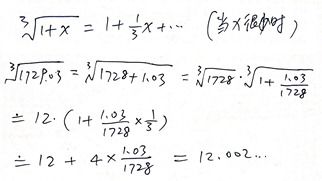 ∛1+x = 1+⅓x+… (当x很小时)
∛1729.03 = ∛1728+1.03 = ∛1728 · ∛1+1.03/1728
≐ 12·(1+1.03/1728×1/3)
≐ 12 + 4×1.03/1728 = 12.002…